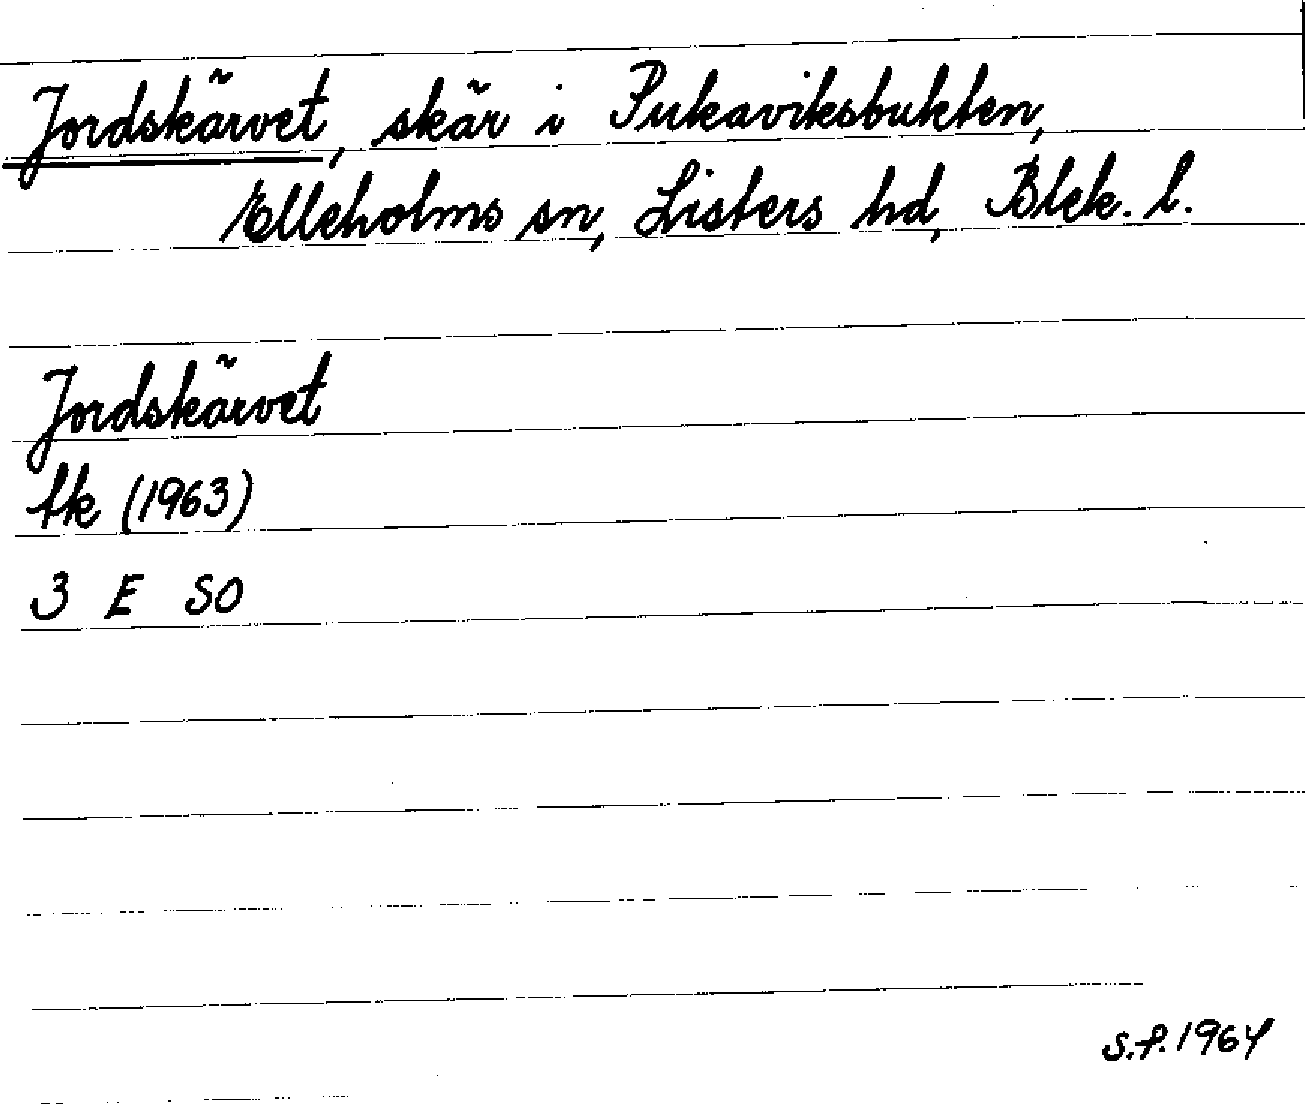 Jordskärvet, skär i Pukaviksbukten,
Elleholms sn, Listers hd, Blek. l.
Jordskärvet
tk (1963)
3 E SO
S.F. 1964